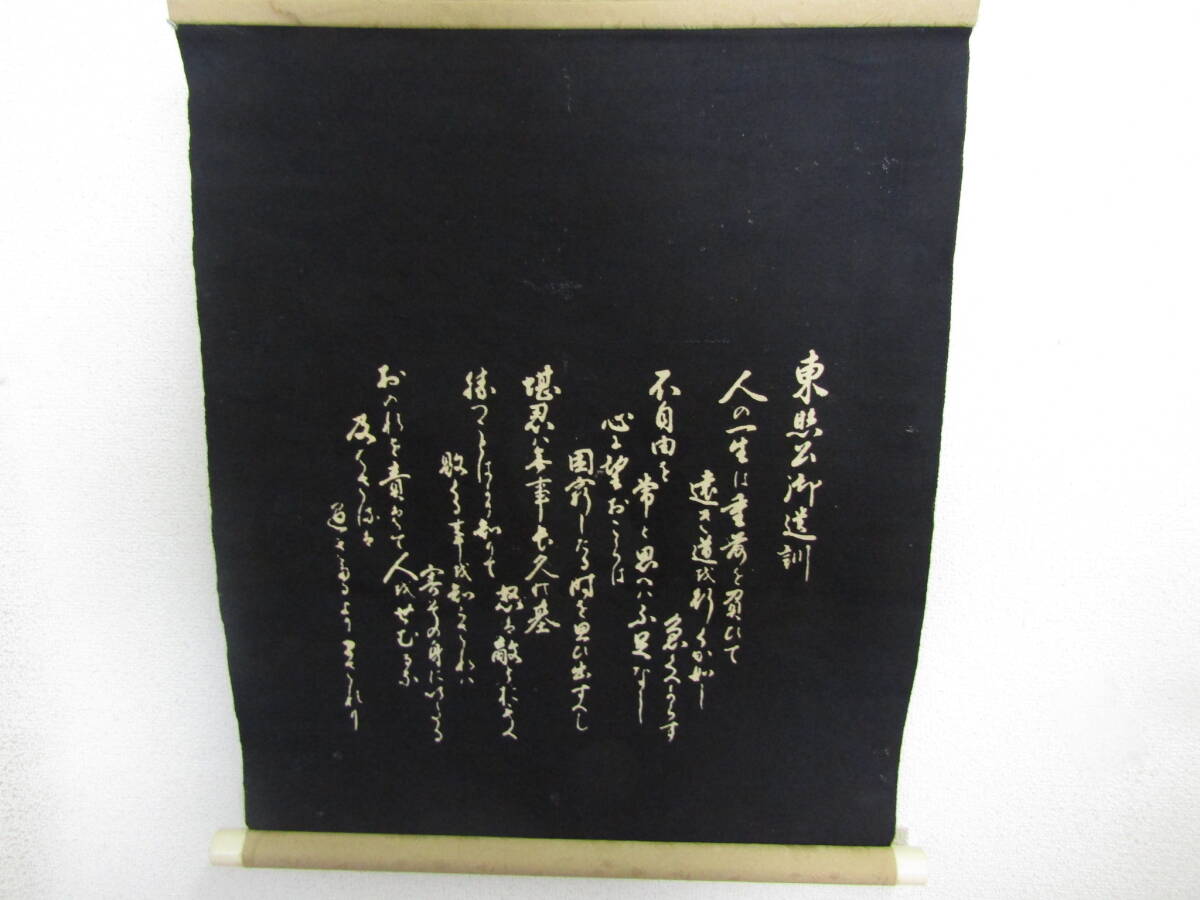 東照公御遺訓
人の一生は重荷を負ひて
遠き道を行くか如し
急くへからす
不自由を
常と思へハ不足なし
心に望おこらは
困窮したる時を思ひ出すへし
堪忍ハ無事長久の基
怒は敵とおもへ
勝つことはかり知りて
敗くる事を知らされハ
害其の身にいたる
おのれを責めて人をせむるな
及はさるは
過きたるよりまされり